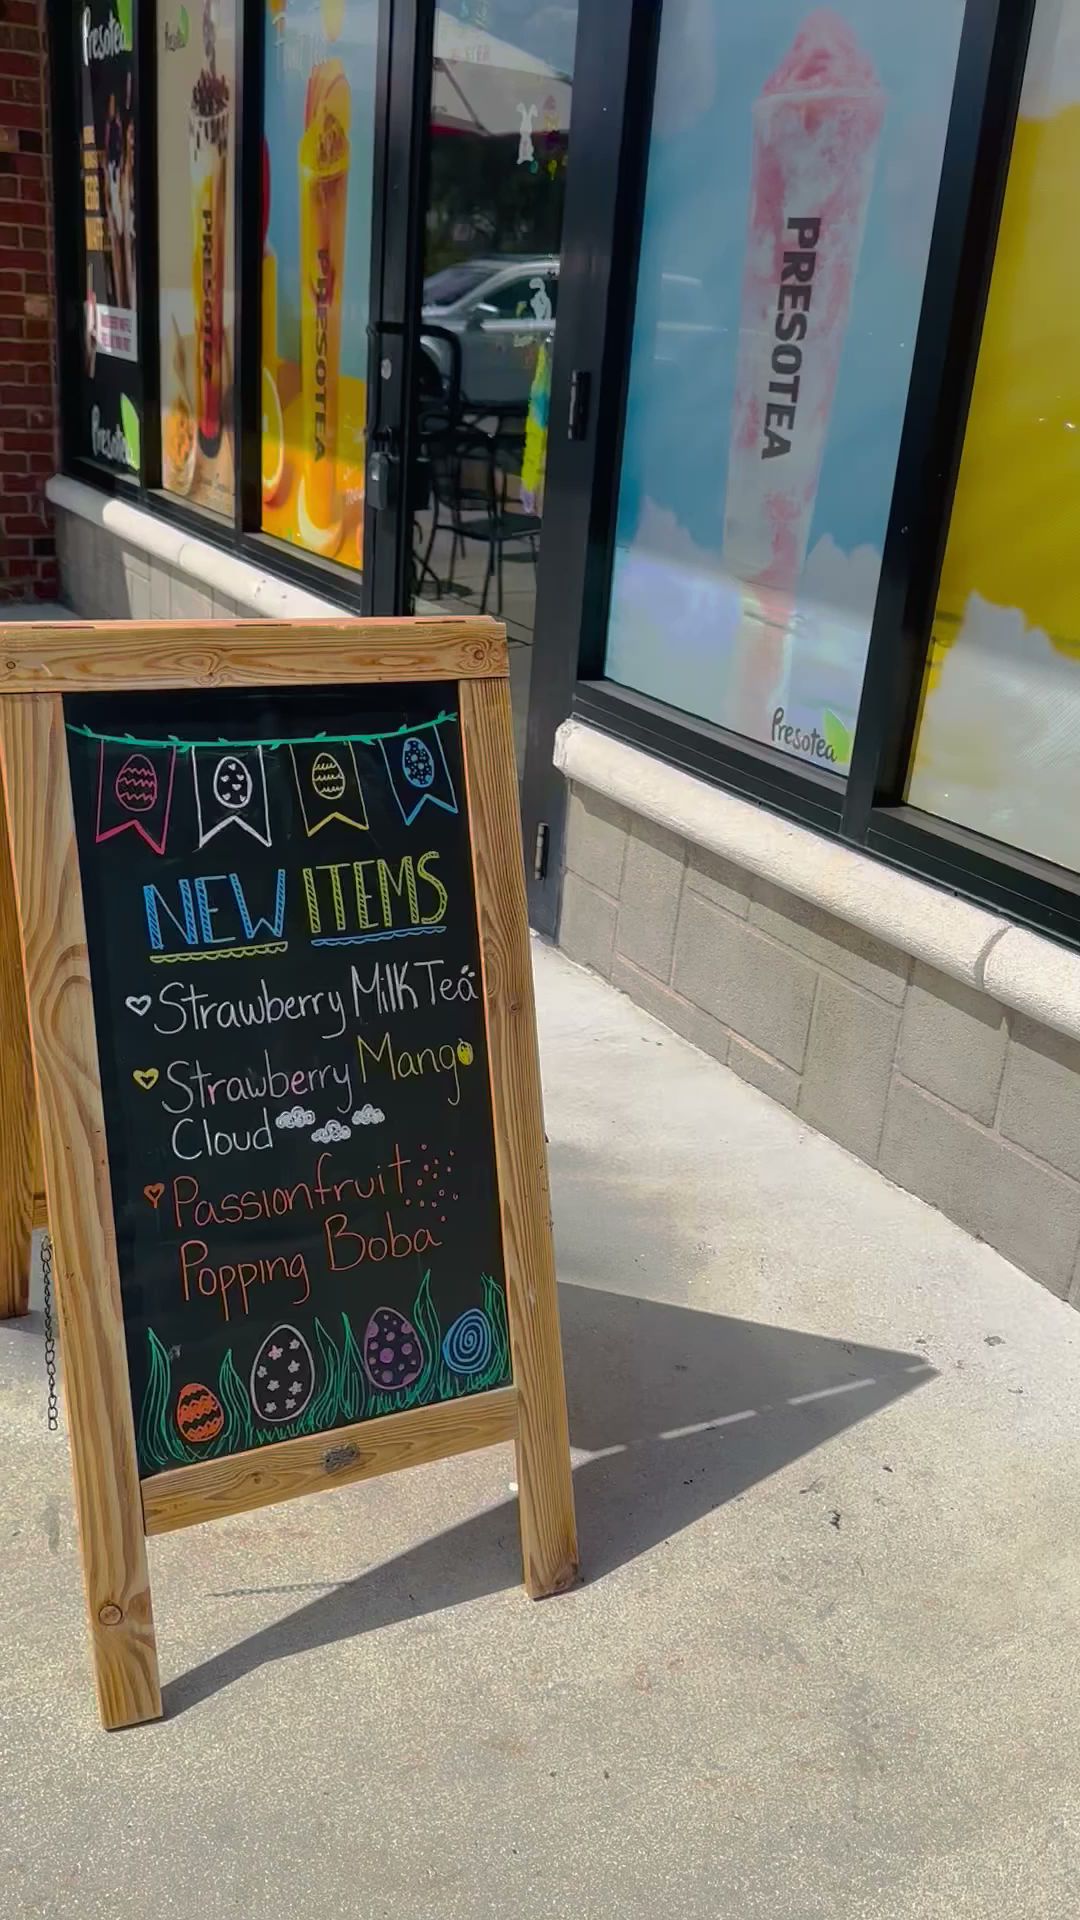 Presotea
Presotea
PRESOTEA
PRESOTEA
PRESOTEA
Presotea
Presotea
NEW ITEMS
Strawberry Milk Tea
Strawberry Mango
Cloud
Passionfruit
Popping Boba